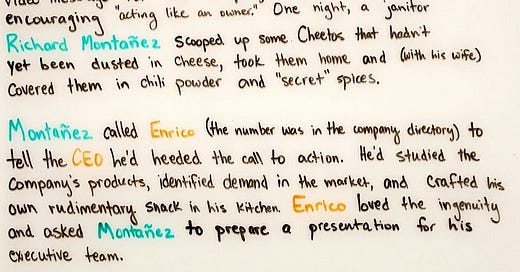 video message
encouraging "acting like an owner." One night, a janitor
Richard Montañez scooped up some Cheetos that hadn't
yet been dusted in cheese, took them home and (with his wife)
covered them in chili powder and "secret" spices.
Montañez called Enrico (the number was in the company directory) to
tell the CEO he'd heeded the call to action. He'd studied the
company's products, identified demand in the market, and crafted his
own rudimentary snack in his kitchen. Enrico loved the ingenuity
and asked Montañez to prepare a presentation for his
executive team.